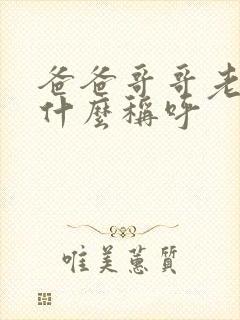 爸爸哥哥老
什麼稱呼
唯美蕙質